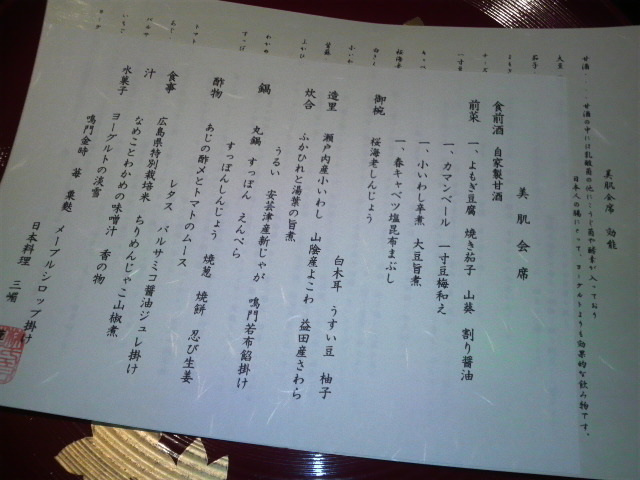 美肌会席 効能
甘酒‥‥甘酒の中には乳酸菌の他にこうじ菌や酵素が入っており
日本人の腸にとって、ヨーグルトよりも効果的な飲み物です。
大豆
茄子
美肌会席
食前酒 自家製甘酒
前菜 一、よもぎ豆腐 焼き茄子 山葵 割り醤油
一、カマンベール 一寸豆梅和え
一、小いわし辛煮 大豆旨煮
一、春キャベツ塩昆布まぶし
御椀 桜海老しんじょう
白木耳 うすい豆 柚子
造里 瀬戸内産小いわし 山陰産よこわ 益田産さわら
炊合 ふかひれと湯葉の旨煮
うるい 安芸津産新じゃが 鳴門若布餡掛け
鍋 丸鍋 すっぽん えんぺら
すっぽんしんじょう 焼葱 焼餅 忍び生姜
酢物 あじの酢〆とトマトのムース
レタス バルサミコ醤油ジュレ掛け
食事 広島県特別栽培米 ちりめんじゃこ山椒煮
汁 なめことわかめの味噌汁 香の物
水菓子 ヨーグルトの淡雪
鳴門金時 苺 粟麩 メープルシロップ掛け
日本料理 三嶋